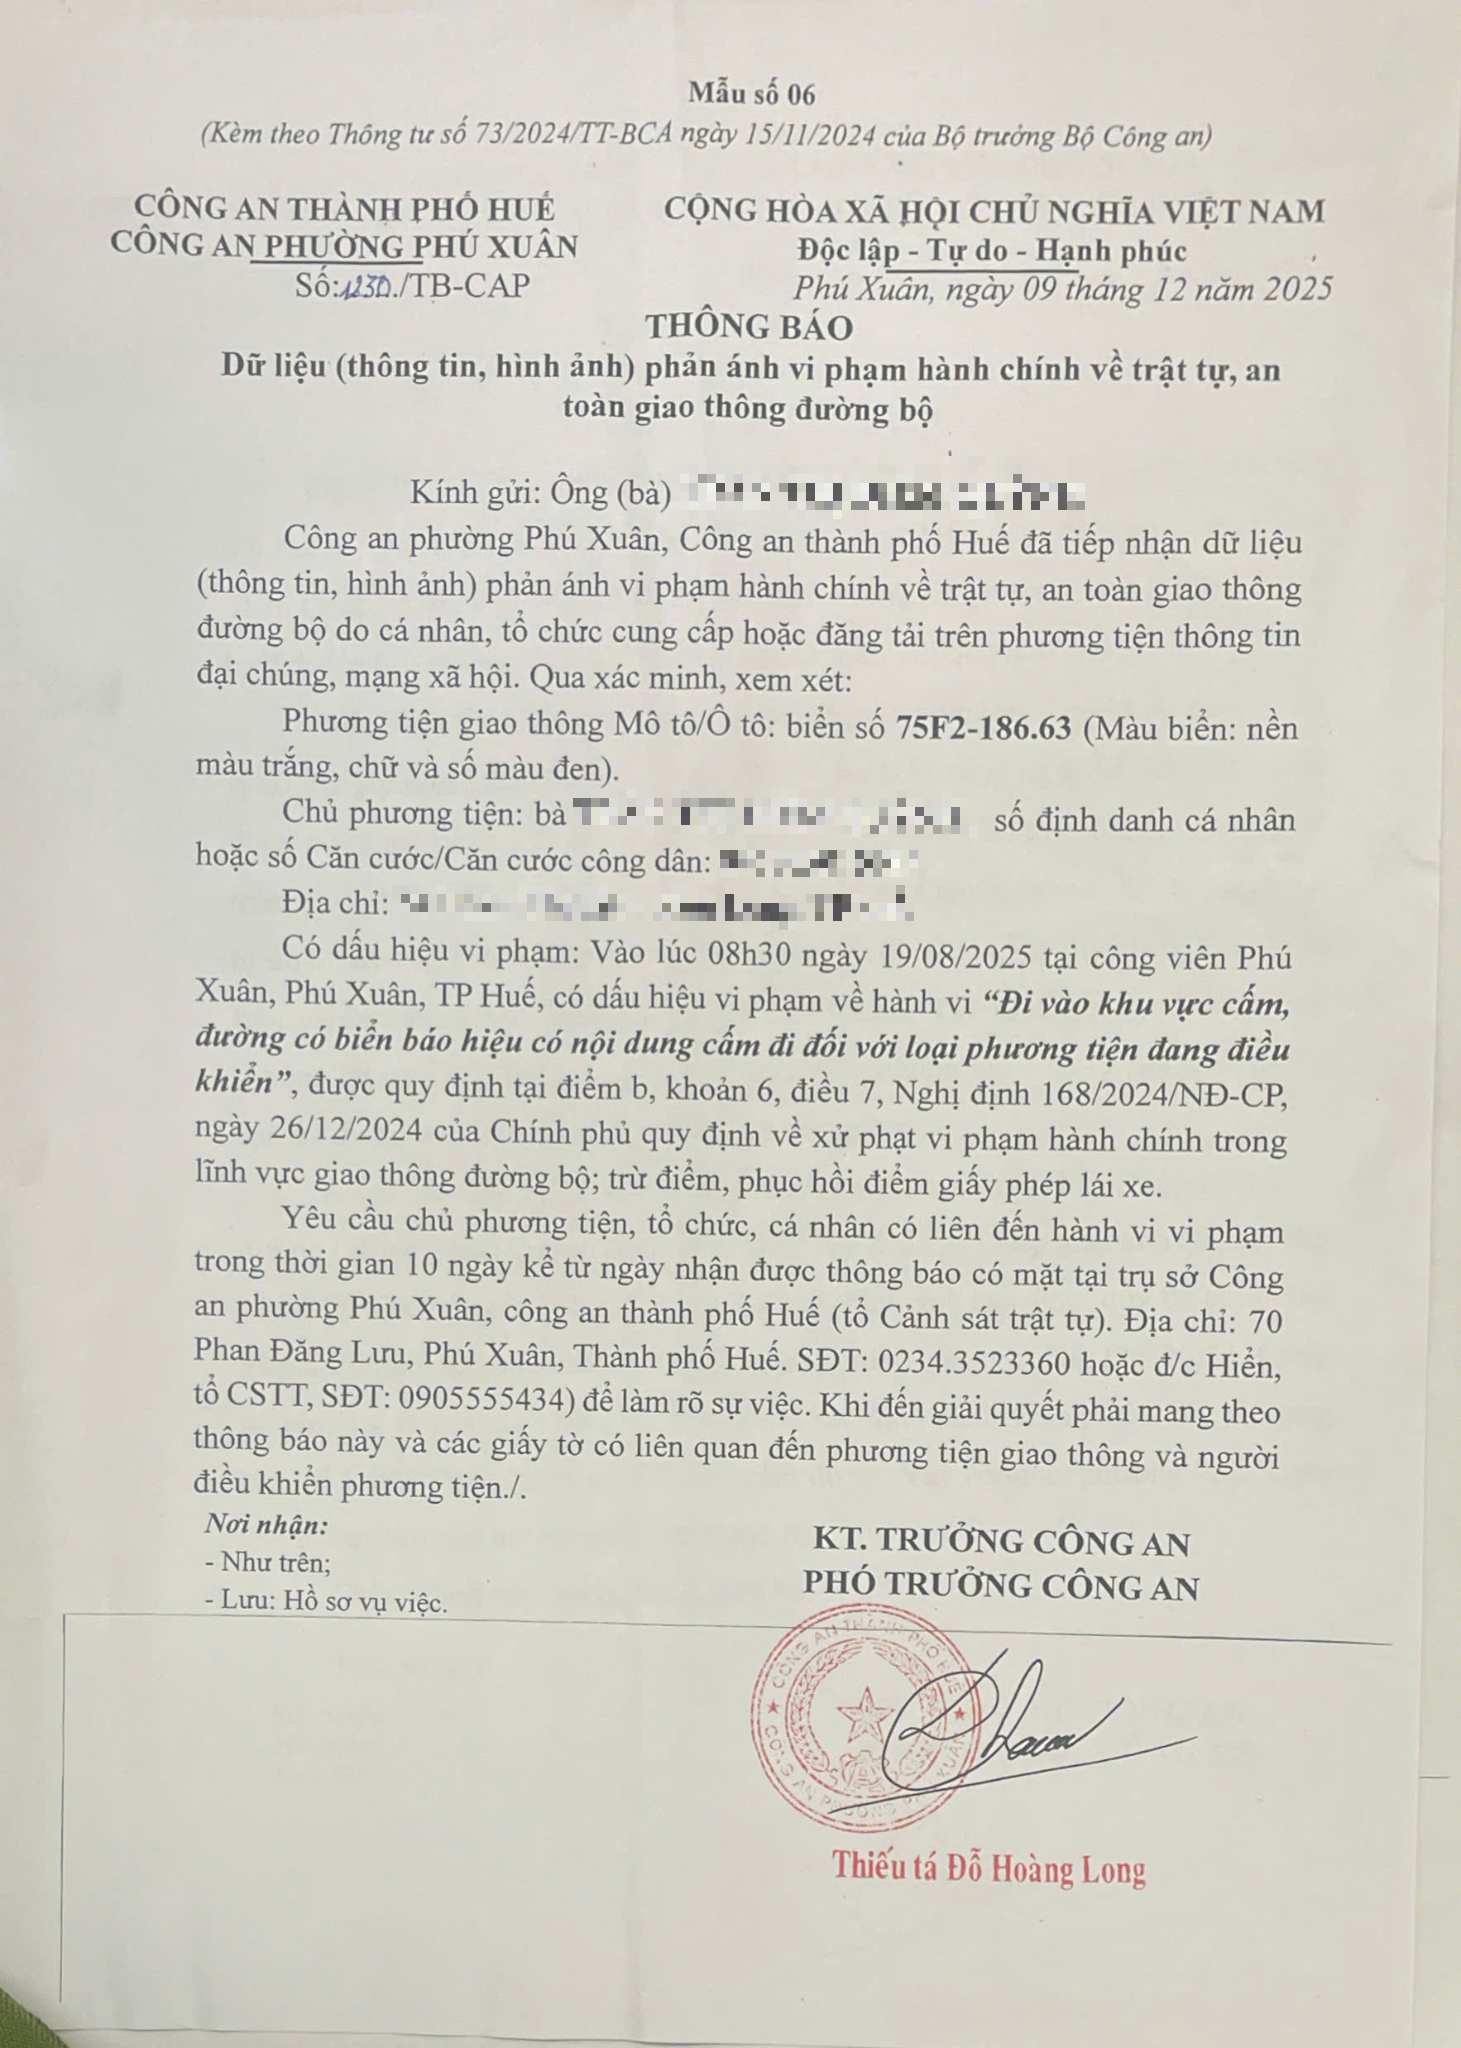 Mẫu số 06
(Kèm theo Thông tư số 73/2024/TT-BCA ngày 15/11/2024 của Bộ trưởng Bộ Công an)
CÔNG AN THÀNH PHỐ HUẾ
CÔNG AN PHƯỜNG PHÚ XUÂN
Số:1230./TB-CAP
CỘNG HÒA XÃ HỘI CHỦ NGHĨA VIỆT NAM
Độc lập - Tự do - Hạnh phúc
Phú Xuân, ngày 09 tháng 12 năm 2025
THÔNG BÁO
Dữ liệu (thông tin, hình ảnh) phản ánh vi phạm hành chính về trật tự, an
toàn giao thông đường bộ
Kính gửi: Ông (bà)
Công an phường Phú Xuân, Công an thành phố Huế đã tiếp nhận dữ liệu
(thông tin, hình ảnh) phản ánh vi phạm hành chính về trật tự, an toàn giao thông
đường bộ do cá nhân, tổ chức cung cấp hoặc đăng tải trên phương tiện thông tin
đại chúng, mạng xã hội. Qua xác minh, xem xét:
Phương tiện giao thông Mô tô/Ô tô: biển số 75F2-186.63 (Màu biển: nền
màu trắng, chữ và số màu đen).
Chủ phương tiện: bà số định danh cá nhân
hoặc số Căn cước/Căn cước công dân:
Địa chỉ:
Có dấu hiệu vi phạm: Vào lúc 08h30 ngày 19/08/2025 tại công viên Phú
Xuân, Phú Xuân, TP Huế, có dấu hiệu vi phạm về hành vi “Đi vào khu vực cấm,
đường có biển báo hiệu có nội dung cấm đi đối với loại phương tiện đang điều
khiển”, được quy định tại điểm b, khoản 6, điều 7, Nghị định 168/2024/NĐ-CP,
ngày 26/12/2024 của Chính phủ quy định về xử phạt vi phạm hành chính trong
lĩnh vực giao thông đường bộ; trừ điểm, phục hồi điểm giấy phép lái xe.
Yêu cầu chủ phương tiện, tổ chức, cá nhân có liên đến hành vi vi phạm
trong thời gian 10 ngày kể từ ngày nhận được thông báo có mặt tại trụ sở Công
an phường Phú Xuân, công an thành phố Huế (tổ Cảnh sát trật tự). Địa chỉ: 70
Phan Đăng Lưu, Phú Xuân, Thành phố Huế. SĐT: 0234.3523360 hoặc đ/c Hiển,
tổ CSTT, SĐT: 0905555434) để làm rõ sự việc. Khi đến giải quyết phải mang theo
thông báo này và các giấy tờ có liên quan đến phương tiện giao thông và người
điều khiển phương tiện./.
Nơi nhận:
- Như trên;
- Lưu: Hồ sơ vụ việc.
KT. TRƯỞNG CÔNG AN
PHÓ TRƯỞNG CÔNG AN
CÔNG AN THÀNH PHỐ HUẾ
CÔNG AN PHƯỜNG PHÚ XUÂN
Thiếu tá Đỗ Hoàng Long